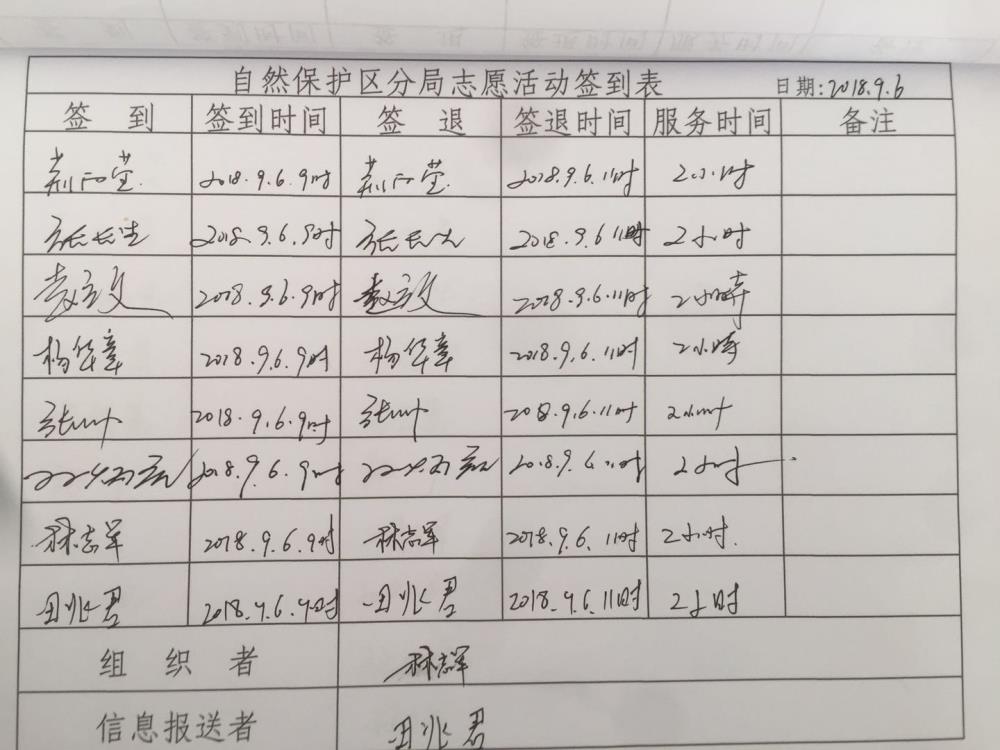 自然保护区分局志愿活动签到表 日期:2018.9.6
签 到 签到时间 签 退 签退时间 服务时间 备注
2018.9.6.9时 2018.9.6.11时 2小时
张长生 2018.9.6.9时 张长生 2018.9.6 11时 2小时
2018.9.6.9时 2018.9.6.11时 2小时
杨华章 2018.9.6.9时 杨华章 2018.9.6.11时 2小时
2018.9.6.9时 2018.9.6.11时 2小时
2018.9.6.9时 2018.9.6.11时 2小时
林志军 2018.9.6.9时 林志军 2018.9.6.11时 2小时.
田兆君 2018.9.6.9时 田兆君 2018.9.6.11时 2小时
组 织 者 林志军
信息报送者 田兆君